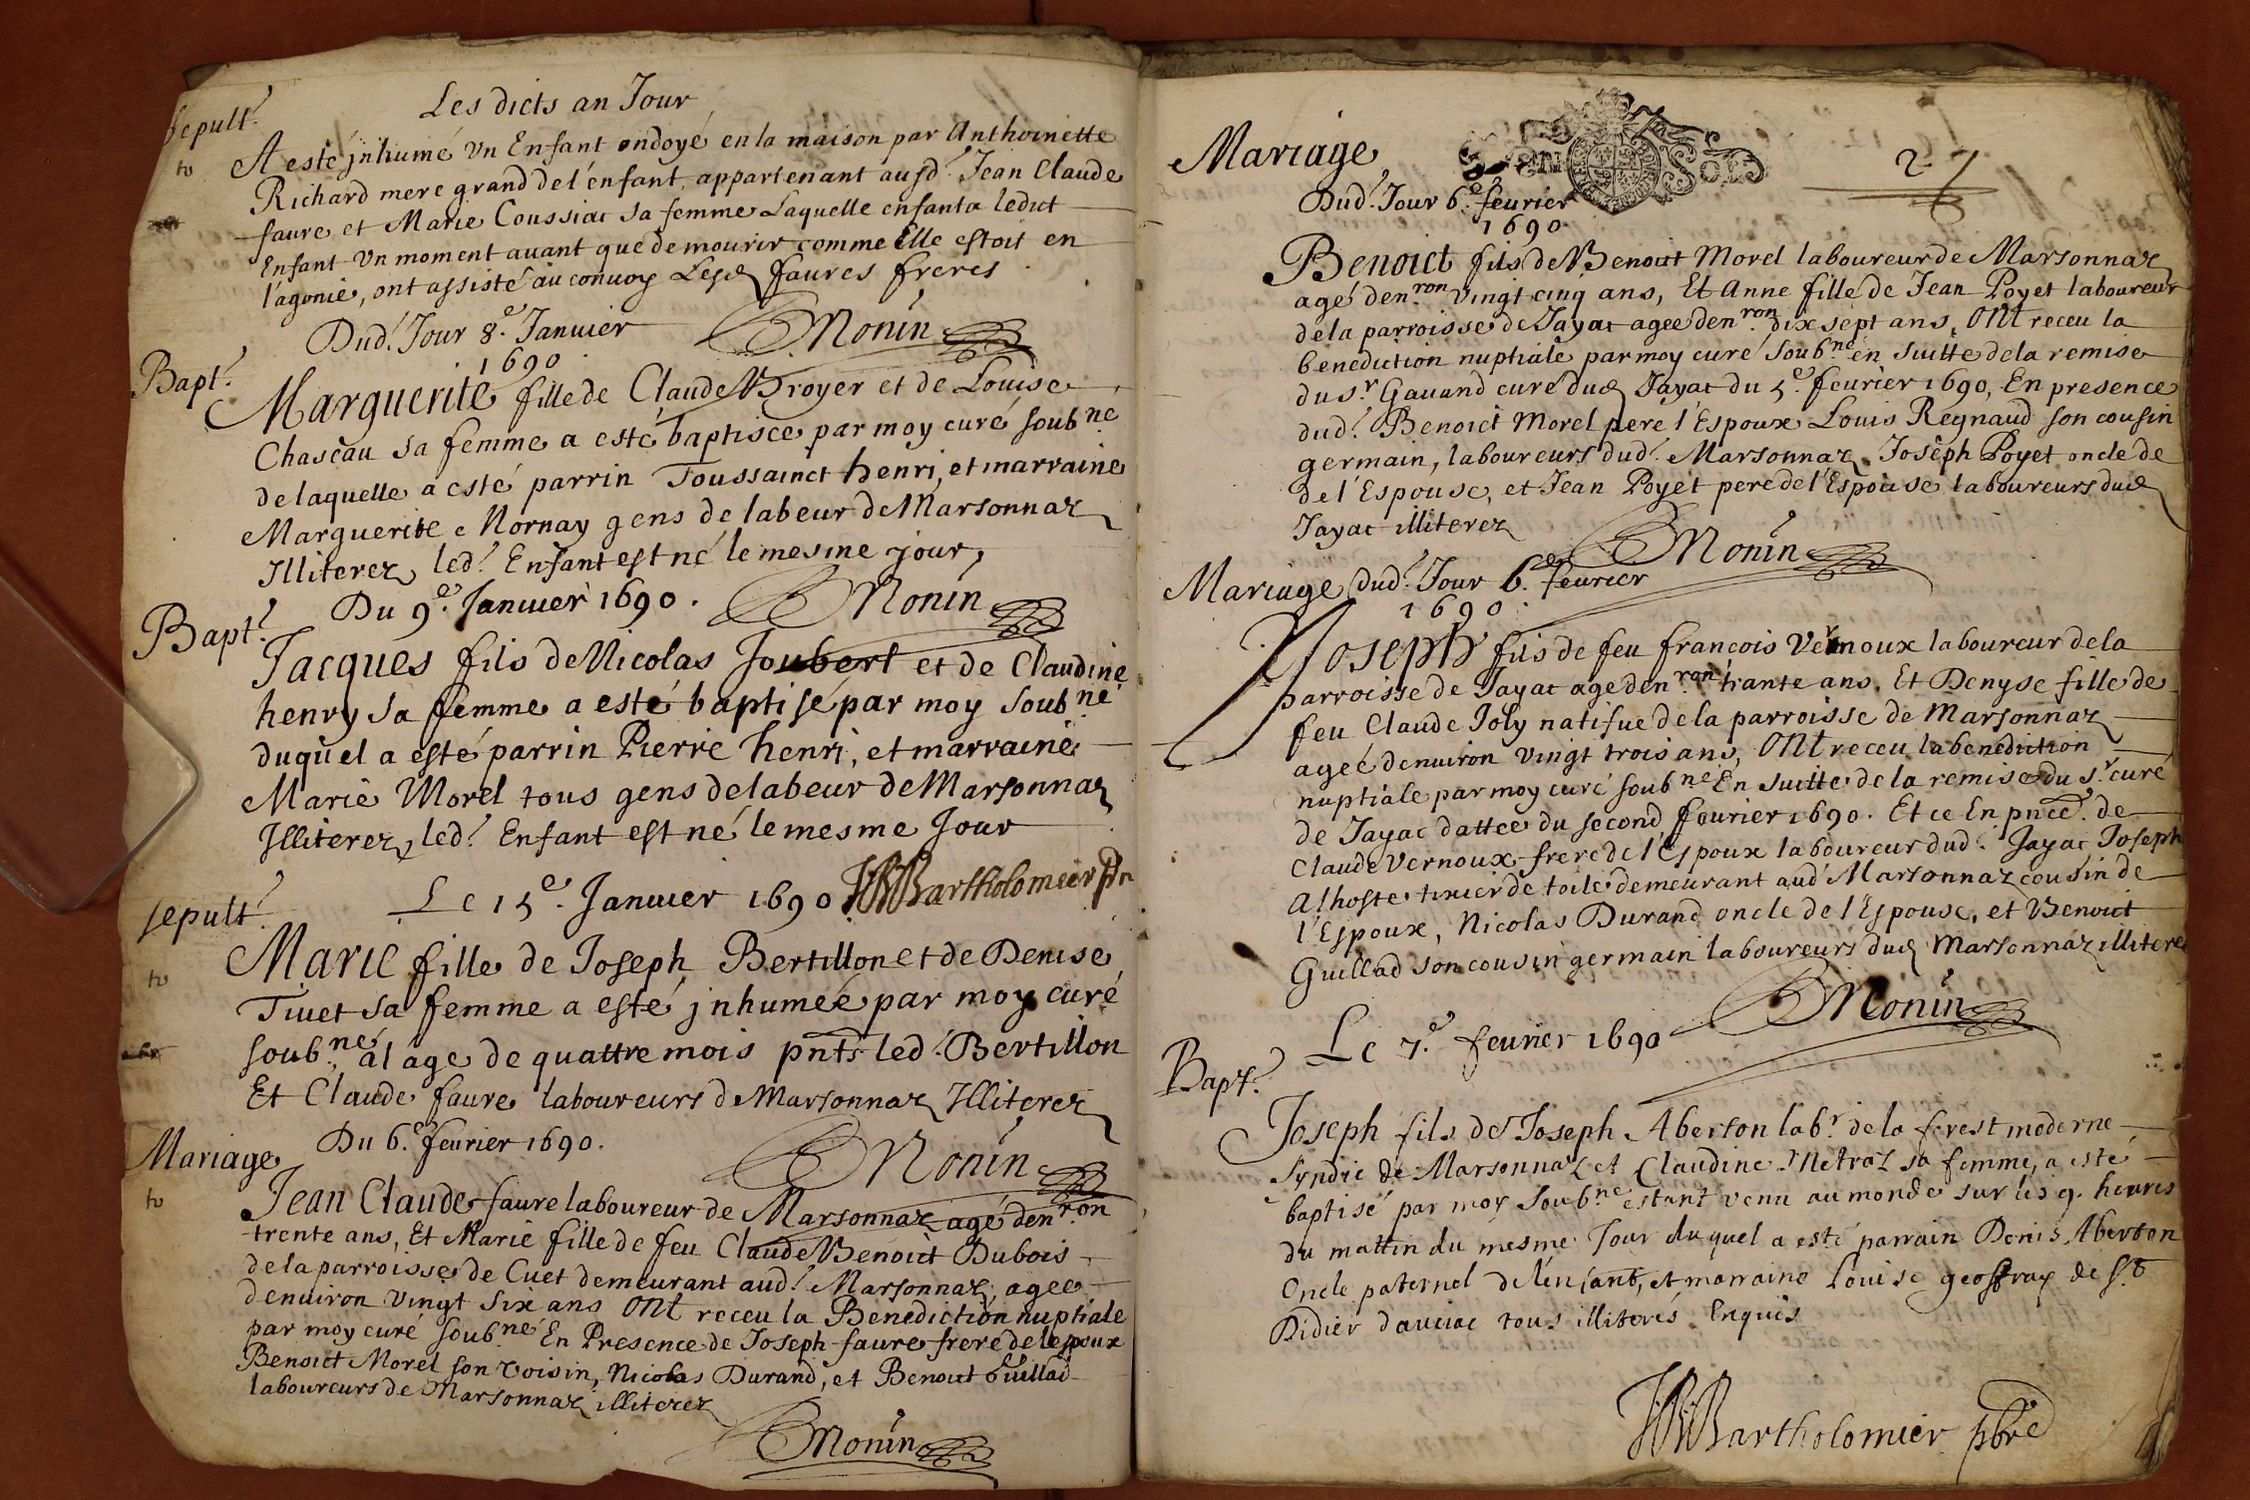 Les dicts an Jour
sepult.
A esté jnhumé Vn Enfant ondoyé en la maison par Anthoinette
to
Richard mere grand de l'énfant, appartenant ausd. Jean Claude
faure et Marie Coussiat sa femme Laquelle enfanta ledict
Enfant Vn moment auant que de mourir comme Elle estoit en
l'agonie, ont assisté au conuoy Lesd. faures freres
Dud. Jour 8.e Januier Monin
1690
Bapt.
Marguerite fille de Claude Broyer et de Louise
Chascau sa femme a esté baptisée par moy curé soub.né
de laquelle a esté parrin Toussainct henri, et marraine
Marguerite Nornay gens de labeur de Marsonnaz
Illiterez, led. Enfant est né le mesme jour,
Du 9.e Januier 1690. Monin
Bapt.
Jacques fils de Nicolas Joubert et de Claudine
henry sa femme a esté baptisé par moy soub.né
duquel a esté parrin Pierre henri, et marraine
Marie Morel tous gens de labeur de Marsonnaz
Illiterez, led. Enfant est né le mesme Jour
Le 15.e Januier 1690 Bartholomier
sepult.
Marie fille de Joseph Bertillon et de Denise
to
Tiuet sa femme a esté jnhumée par moy curé
soub.né, al age de quattre mois pnts led. Bertillon
Et Claude faure laboureurs de Marsonnaz Illiterez
Du 6.e feurier 1690. Monin
Mariage
to
Jean Claude faure laboureur de Marsonnaz agé den.ron
trente ans, Et Marie fille de feu Claude Benoict Dubois
de la parroisse de Cuet demeurant aud. Marsonnaz, agee
denuiron Vingt six ans ONt receu la Benediction nuptiale
par moy curé soub.né En Presence de Joseph faure frere de lespoux
Benoict Morel son voisin, Nicolas Durand, et Benoict Guillad
laboureurs de Marsonnaz illiterez
Monin
Mariage
27
Dud. Jour 6.e feurier
1690.
Benoict fils de Benoict Morel laboureur de Marsonnaz
agé den.ron Vingt cinq ans, Et Anne fille de Jean Poyet laboureur
de la parroisse de Jayac agee den.ron dix sept ans, ONt receu la
benediction nuptiale par moy curé soub.né en suitte de la remise
du s.r Gauand curé dud. Jayac du 5.e feurier 1690, En presence
dud. Benoict Morel pere l'Espoux Louis Regnaud son cousin
germain, laboureurs dud. Marsonnaz, Joseph Poyet oncle de
de l'Espouse, et Jean Poyet pere de l'Espouse laboureurs dud.
Jayac illiterez
Monin
Mariage Dud. Jour 6.e feurier
1690.
Joseph fils de feu francois Vernoux laboureur de la
parroisse de Jayac age den.ron trante ans, Et Denyse fille de
feu Claude Joly natifue de la parroisse de Marsonnaz
ageé denuiron Vingt trois ans, ONt receu la benediction
nuptiale par moy curé soub.né En suitte de la remise du s.r curé
de Jayac dattee du second feurier 1690. Et ce En pnce. de
Claude Vernoux frere de l'Espoux laboureur dud. Jayac Joseph
Alhoste tixier de toile demeurant aud. Marsonnaz cousin de
l'Espoux, Nicolas Durand oncle de l'Espouse, et Benoict
Guillad son cousin germain laboureurs dud. Marsonnaz illitere
Monin
Le 7.e feurier 1690
Bapt.
Joseph fils de Joseph Aberton lab.r de la forest moderne
Syndic de Marsonnaz et Claudine Metraz sa femme, a esté
baptisé par moy Soub.né estant venu au monde sur les 9. heures
du mattin du mesme Jour duquel a esté parrain Denis Aberton
Oncle paternel de lenfant, et marraine Louise geoffray de S.t
Didier dauciac tous illiterés Enquis
Bartholomier pbre